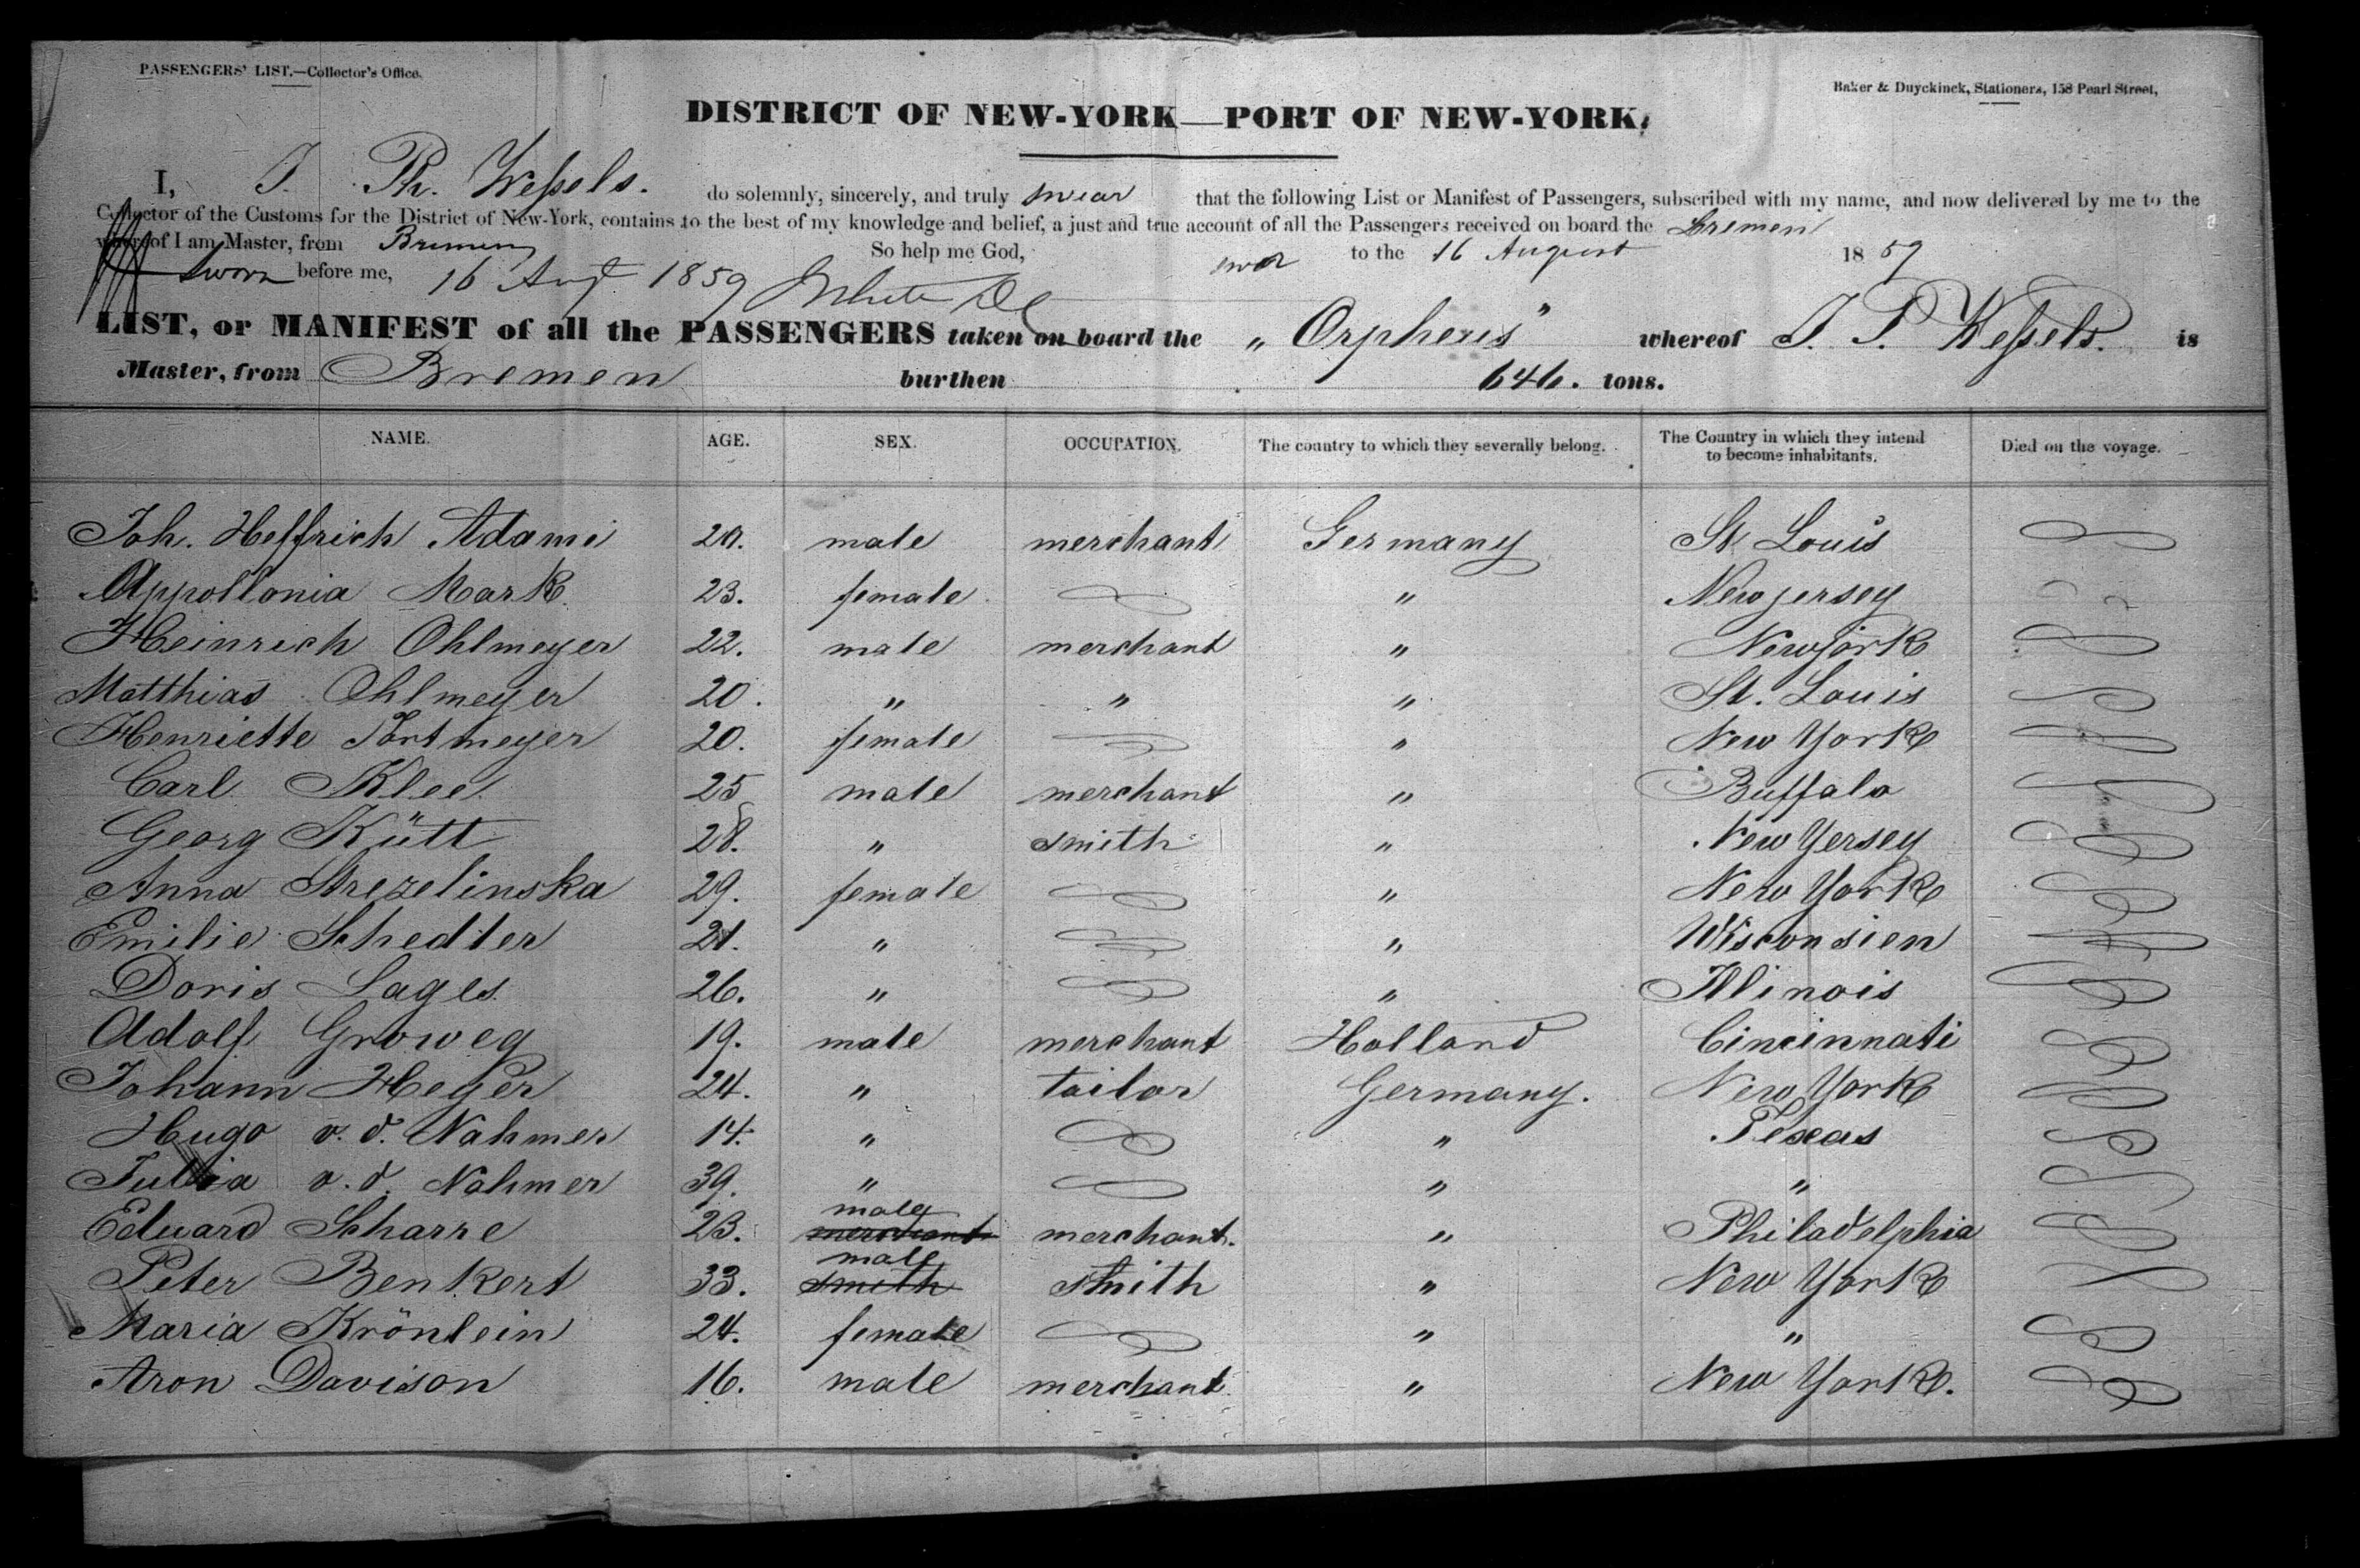 PASSENGERS' LIST.—Collector's Office.
Baker & Duyckinck, Stationers, 158 Pearl Street,
DISTRICT OF NEW-YORK—PORT OF NEW-YORK.
I, J. Ph. Weſsels. do solemnly, sincerely, and truly swear that the following List or Manifest of Passengers, subscribed with my name, and now delivered by me to the
Collector of the Customs for the District of New-York, contains to the best of my knowledge and belief, a just and true account of all the Passengers received on board the Bremen
whereof I am Master, from Bremen So help me God,
Sworn before me, 16 Augt 1859 to the 16 August 1859
LIST, or MANIFEST of all the PASSENGERS taken on board the „Orpheus" whereof J. P. Weſsels. is
Master, from Bremen burthen 646. tons.
NAME. AGE. SEX. OCCUPATION. The country to which they severally belong. The Country in which they intend to become inhabitants. Died on the voyage.
Joh. Heffrich Adami 20. male merchant Germany St Louis
Appollonia Mark 23. female " New jersey
Heinrich Ohlmeyer 22. male merchant " Newjork
Matthias Ohlmeyer 20. " " " St. Louis
Henriette Tortmeyer 20. female " New York
Carl Klee 25 male merchant " Buffalo
Georg Kütt 28. " smith " New Yersey
Anna Strezelinska 29. female " New York
Emilie Schedler 21. " " Wisconsien
Doris Lages 26. " " Illinois
Adolf Groweg 19. male merchant Holland Cincinnati
Johann Heyer 24. " tailor Germany. New York
Hugo v. d. Nahmer 14. " " Texas
Julia v. d. Nahmer 39. " " "
Eduard Scharre 23. merchant male merchant. " Philadelphia
Peter Benkert 33. smith male smith " New York
Maria Krönlein 24. female " "
Aron Davison 16. male merchant " New York.